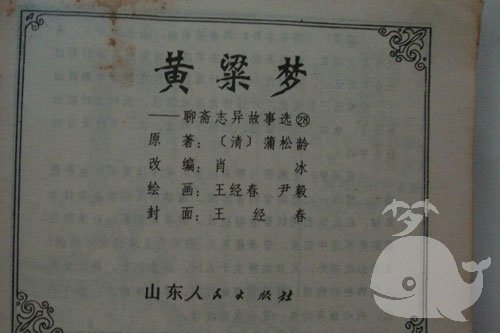 黄粱梦
——聊斋志异故事选㉘
原著：（清）蒲松龄
改编：肖冰
绘画：王经春 尹毅
封面：王经春
山东人民出版社
梦